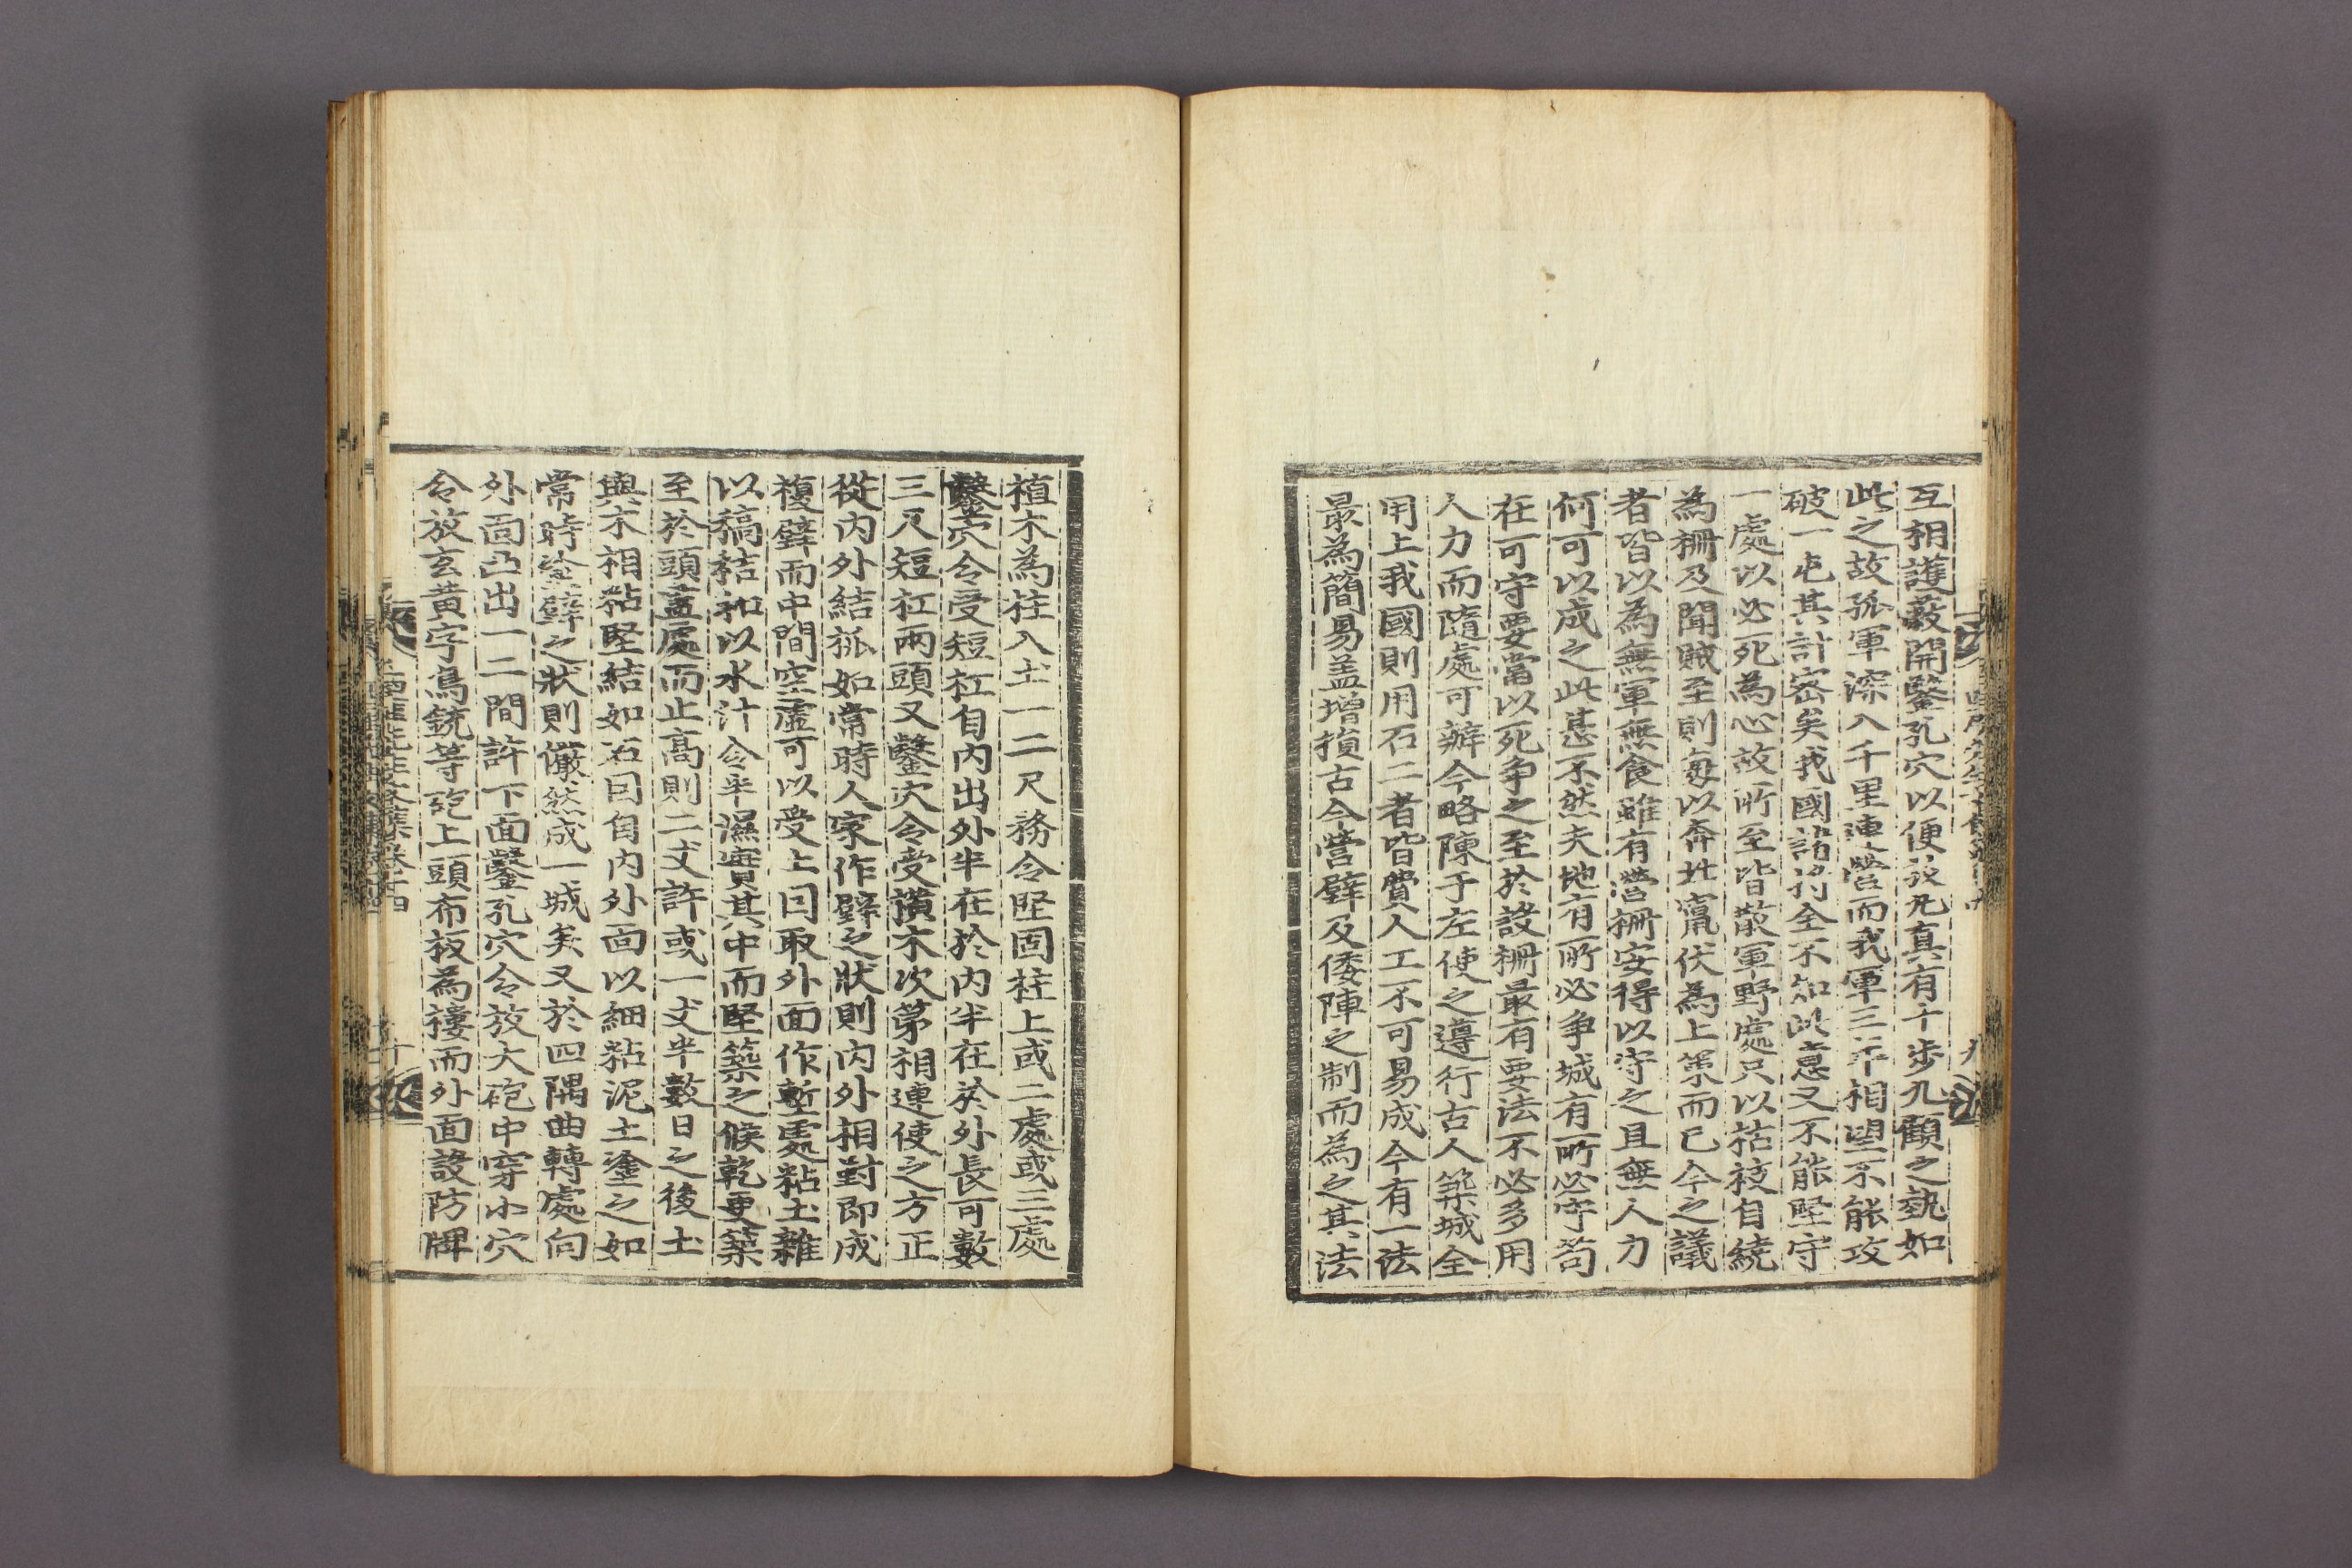 互相護蔽開鑿孔穴以便放丸真有十步九顧之勢如
此之故孤軍深入千里連營而我軍三年相望不能攻
破一屯其計密矣我國諸將全不知此意又不能堅守
一處以必死為心故所至皆散軍野處只以枯枝自繞
為柵及聞賊至則每以奔北竄伏為上策而已今之議
者皆以為無軍無食雖有營柵安得以守之且無人力
何可以成之此甚不然夫地有所必爭城有所必守苟
在可守要當以死爭之至於設柵最有要法不必多用
人力而隨處可辦今略陳于左使之遵行古人築城全
用土我國則用石二者皆費人工不可易成今有一法
最為簡易盖增損古今營壁及倭陣之制而為之其法
植木為柱入土一二尺務令堅固柱上或二處或三處
鑿穴令受短杠自內出外半在於內半在於外長可數
三尺短杠兩頭又鑿穴令受橫木次第相連使之方正
從內外結抓如常時人家作壁之狀則內外相對即成
複壁而中間空虛可以受土因取外面作塹處粘土雜
以稿秸和以水汁令半濕實其中而堅築之候乾更築
至於頭盖處而止高則二丈許或一丈半數日之後土
與木相粘堅結如石因自內外面以細粘泥土塗之如
常時塗壁之狀則儼然成一城矣又於四隅曲轉處向
外面凸出一二間許下面鑿孔穴令放大砲中穿小穴
令放玄黃字鳥銃等砲上頭布板為樓而外面設防牌